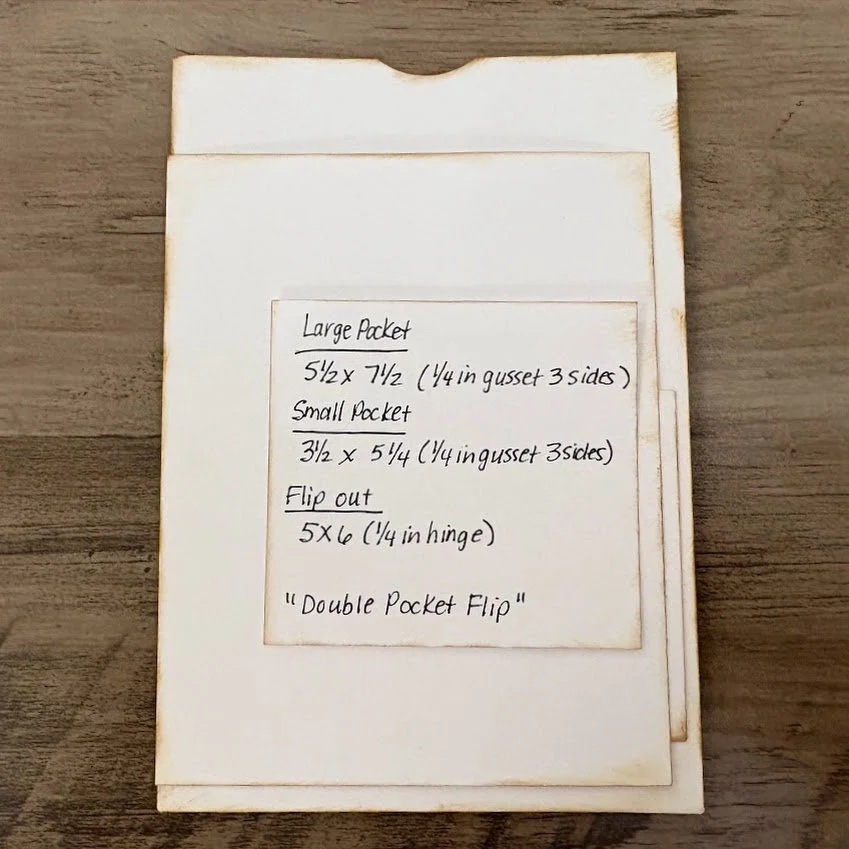 Large Pocket
5 1/2 x 7 1/2 (1/4 in gusset 3 sides)
Small Pocket
3 1/2 x 5 1/4 (1/4 in gusset 3 sides)
Flip out
5 x 6 (1/4 in hinge)
"Double Pocket Flip"